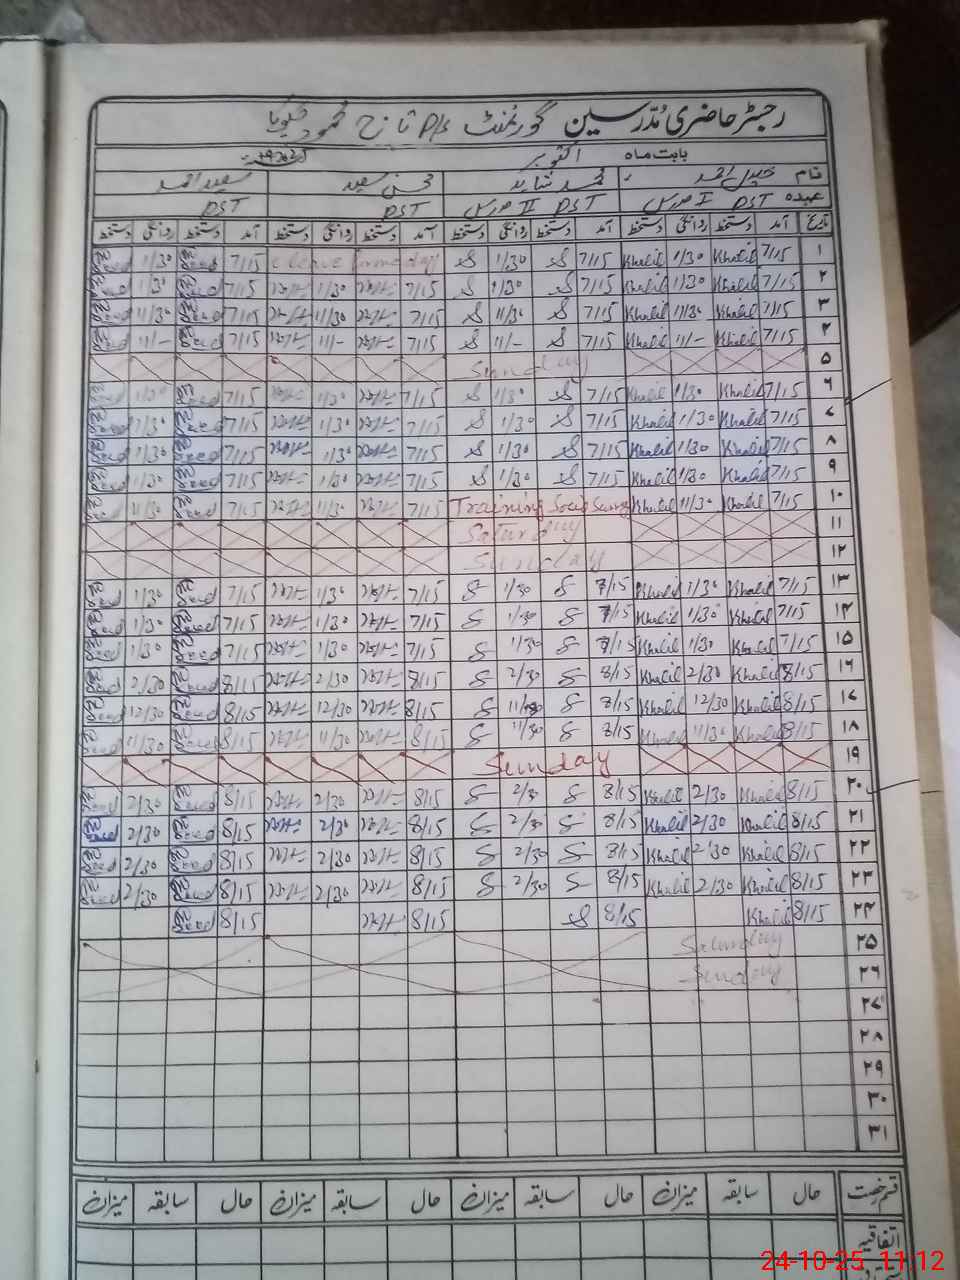 رجسٹر حاضری مُدرسین گورنمنٹ P/S
بابت ماہ اکتوبر 2025
نام خلیل احمد محمد شاہد محسن سعید سعید احمد
عہدہ مدرس I PST مدرس II PST PST
تاریخ آمد دستخط روانگی دستخط آمد دستخط روانگی دستخط آمد دستخط روانگی دستخط آمد دستخط روانگی دستخط
۱ 7/15 Khalil 1/30 Khalil 7/15 S 1/30 S leave 7/15 Saeed 1/30 Saeed
۲ 7/15 Khalil 1/30 Khalil 7/15 S 1/30 S 7/15 1/30 7/15 Saeed 1/30 Saeed
۳ 7/15 Khalil 11/30 Khalil 7/15 S 11/30 S 7/15 11/30 7/15 Saeed 11/30 Saeed
۴ 7/15 Khalil 11/- Khalil 7/15 S 11/- S 7/15 11/- 7/15 Saeed 11/- Saeed
۵ Sunday
۶ 7/15 Khalil 1/30 Khalil 7/15 S 1/30 S 7/15 1/30 7/15 Saeed 1/30 Saeed
۷ 7/15 Khalil 1/30 Khalil 7/15 S 1/30 S 7/15 1/30 7/15 Saeed 1/30 Saeed
۸ 7/15 Khalil 1/30 Khalil 7/15 S 1/30 S 7/15 1/30 7/15 Saeed 1/30 Saeed
۹ 7/15 Khalil 1/30 Khalil 7/15 S 1/30 S 7/15 1/30 7/15 Saeed 1/30 Saeed
۱۰ 7/15 Khalil 11/30 Khalil Training 7/15 11/30 7/15 Saeed 11/30 Saeed
۱۱ Saturday
۱۲ Sunday
۱۳ 7/15 Khalil 1/30 Khalil 7/15 S 1/30 S 7/15 1/30 7/15 Saeed 1/30 Saeed
۱۴ 7/15 Khalil 1/30 Khalil 7/15 S 1/30 S 7/15 1/30 7/15 Saeed 1/30 Saeed
۱۵ 7/15 Khalil 1/30 Khalil 7/15 S 1/30 S 7/15 1/30 7/15 Saeed 1/30 Saeed
۱۶ 8/15 Khalil 2/30 Khalil 8/15 S 2/30 S 8/15 2/30 8/15 Saeed 2/30 Saeed
۱۷ 8/15 Khalil 12/30 Khalil 8/15 S S 8/15 12/30 8/15 Saeed 12/30 Saeed
۱۸ 8/15 Khalil 11/30 Khalil 8/15 S 11/30 S 8/15 11/30 8/15 Saeed 11/30 Saeed
۱۹ Sunday
۲۰ 8/15 Khalil 2/30 Khalil 8/15 S 2/30 S 8/15 2/30 8/15 Saeed 2/30 Saeed
۲۱ 8/15 Khalil 2/30 Khalil 8/15 S 2/30 S 8/15 2/30 8/15 Saeed 2/30 Saeed
۲۲ 8/15 Khalil 2/30 Khalil 8/15 S 2/30 S 8/15 2/30 8/15 Saeed 2/30 Saeed
۲۳ 8/15 Khalil 2/30 Khalil 8/15 S 2/30 S 8/15 2/30 8/15 Saeed 2/30 Saeed
۲۴ 8/15 Khalil 8/15 S 8/15 8/15 Saeed
۲۵ Saturday
۲۶ Sunday
۲۷
۲۸
۲۹
۳۰
۳۱
قسم رخصت حال سابقہ میزان حال سابقہ میزان حال سابقہ میزان حال سابقہ میزان
اتفاقیہ
24-10-25 11:12